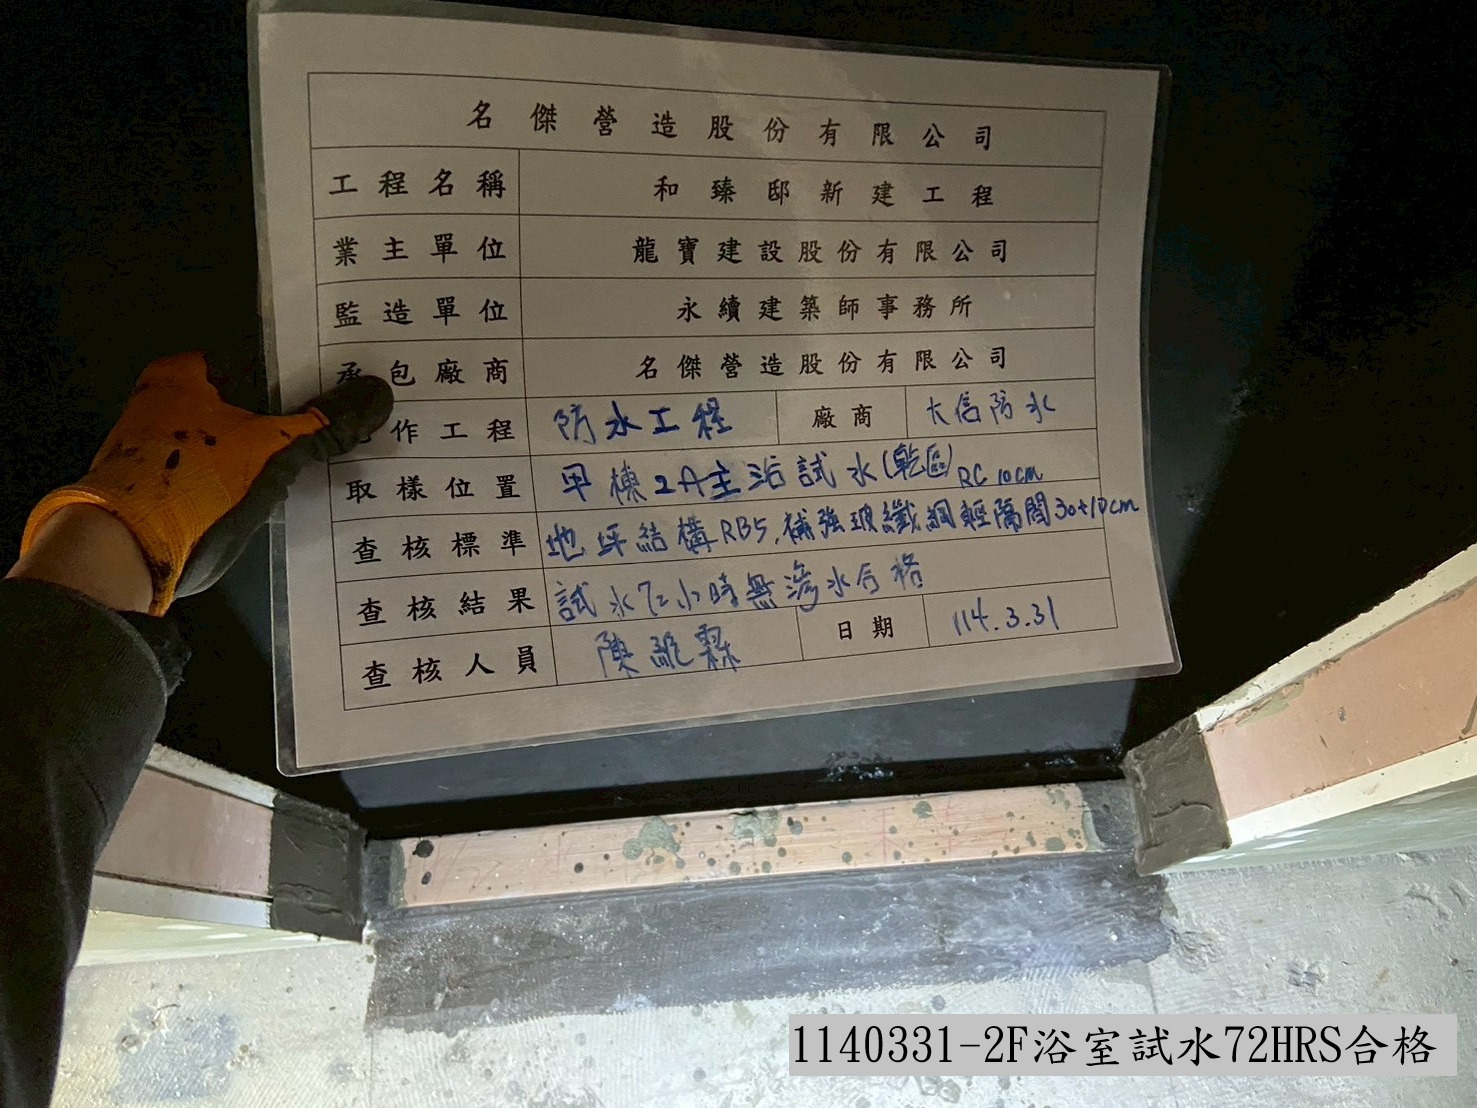 名傑營造股份有限公司
工程名稱 和臻邸新建工程
業主單位 龍寶建設股份有限公司
監造單位 永續建築師事務所
承包廠商 名傑營造股份有限公司
作工程 防水工程 廠商 大信防水
取樣位置 甲棟2A主浴試水(乾區)
RC 10cm
查核標準 地坪結構RB5,補強玻纖網輕隔間30+10cm
查核結果 試水72小時無滲水合格
查核人員 陳 霖 日期 114.3.31
1140331-2F浴室試水72HRS合格